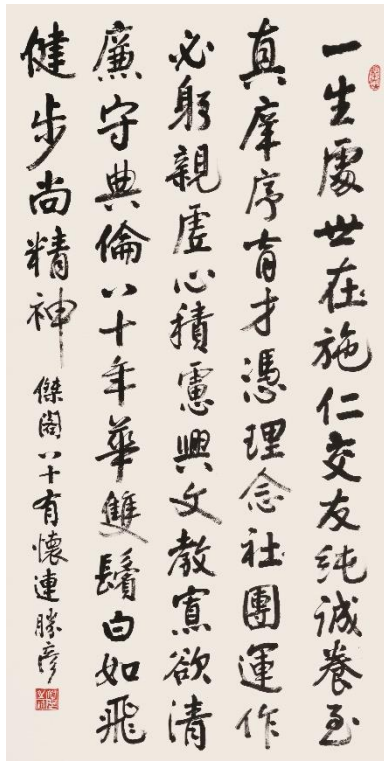 一生處世在施仁交友純誠養至
真庠序育才憑理念社團運作
必躬親虛心積慮興文教寡欲清
廉守典倫八十年華雙鬢白如飛
健步尚精神 傑閣八十有懷連勝彥